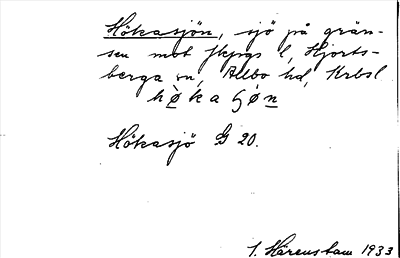 Hökasjön, sjö på grän-
sen mot Jkpgs l, Hjorts-
berga sn, Allbo hd, Krbsl
hø̀kaʃøn
Hökasjö G 20.
1. Härenstam 1933